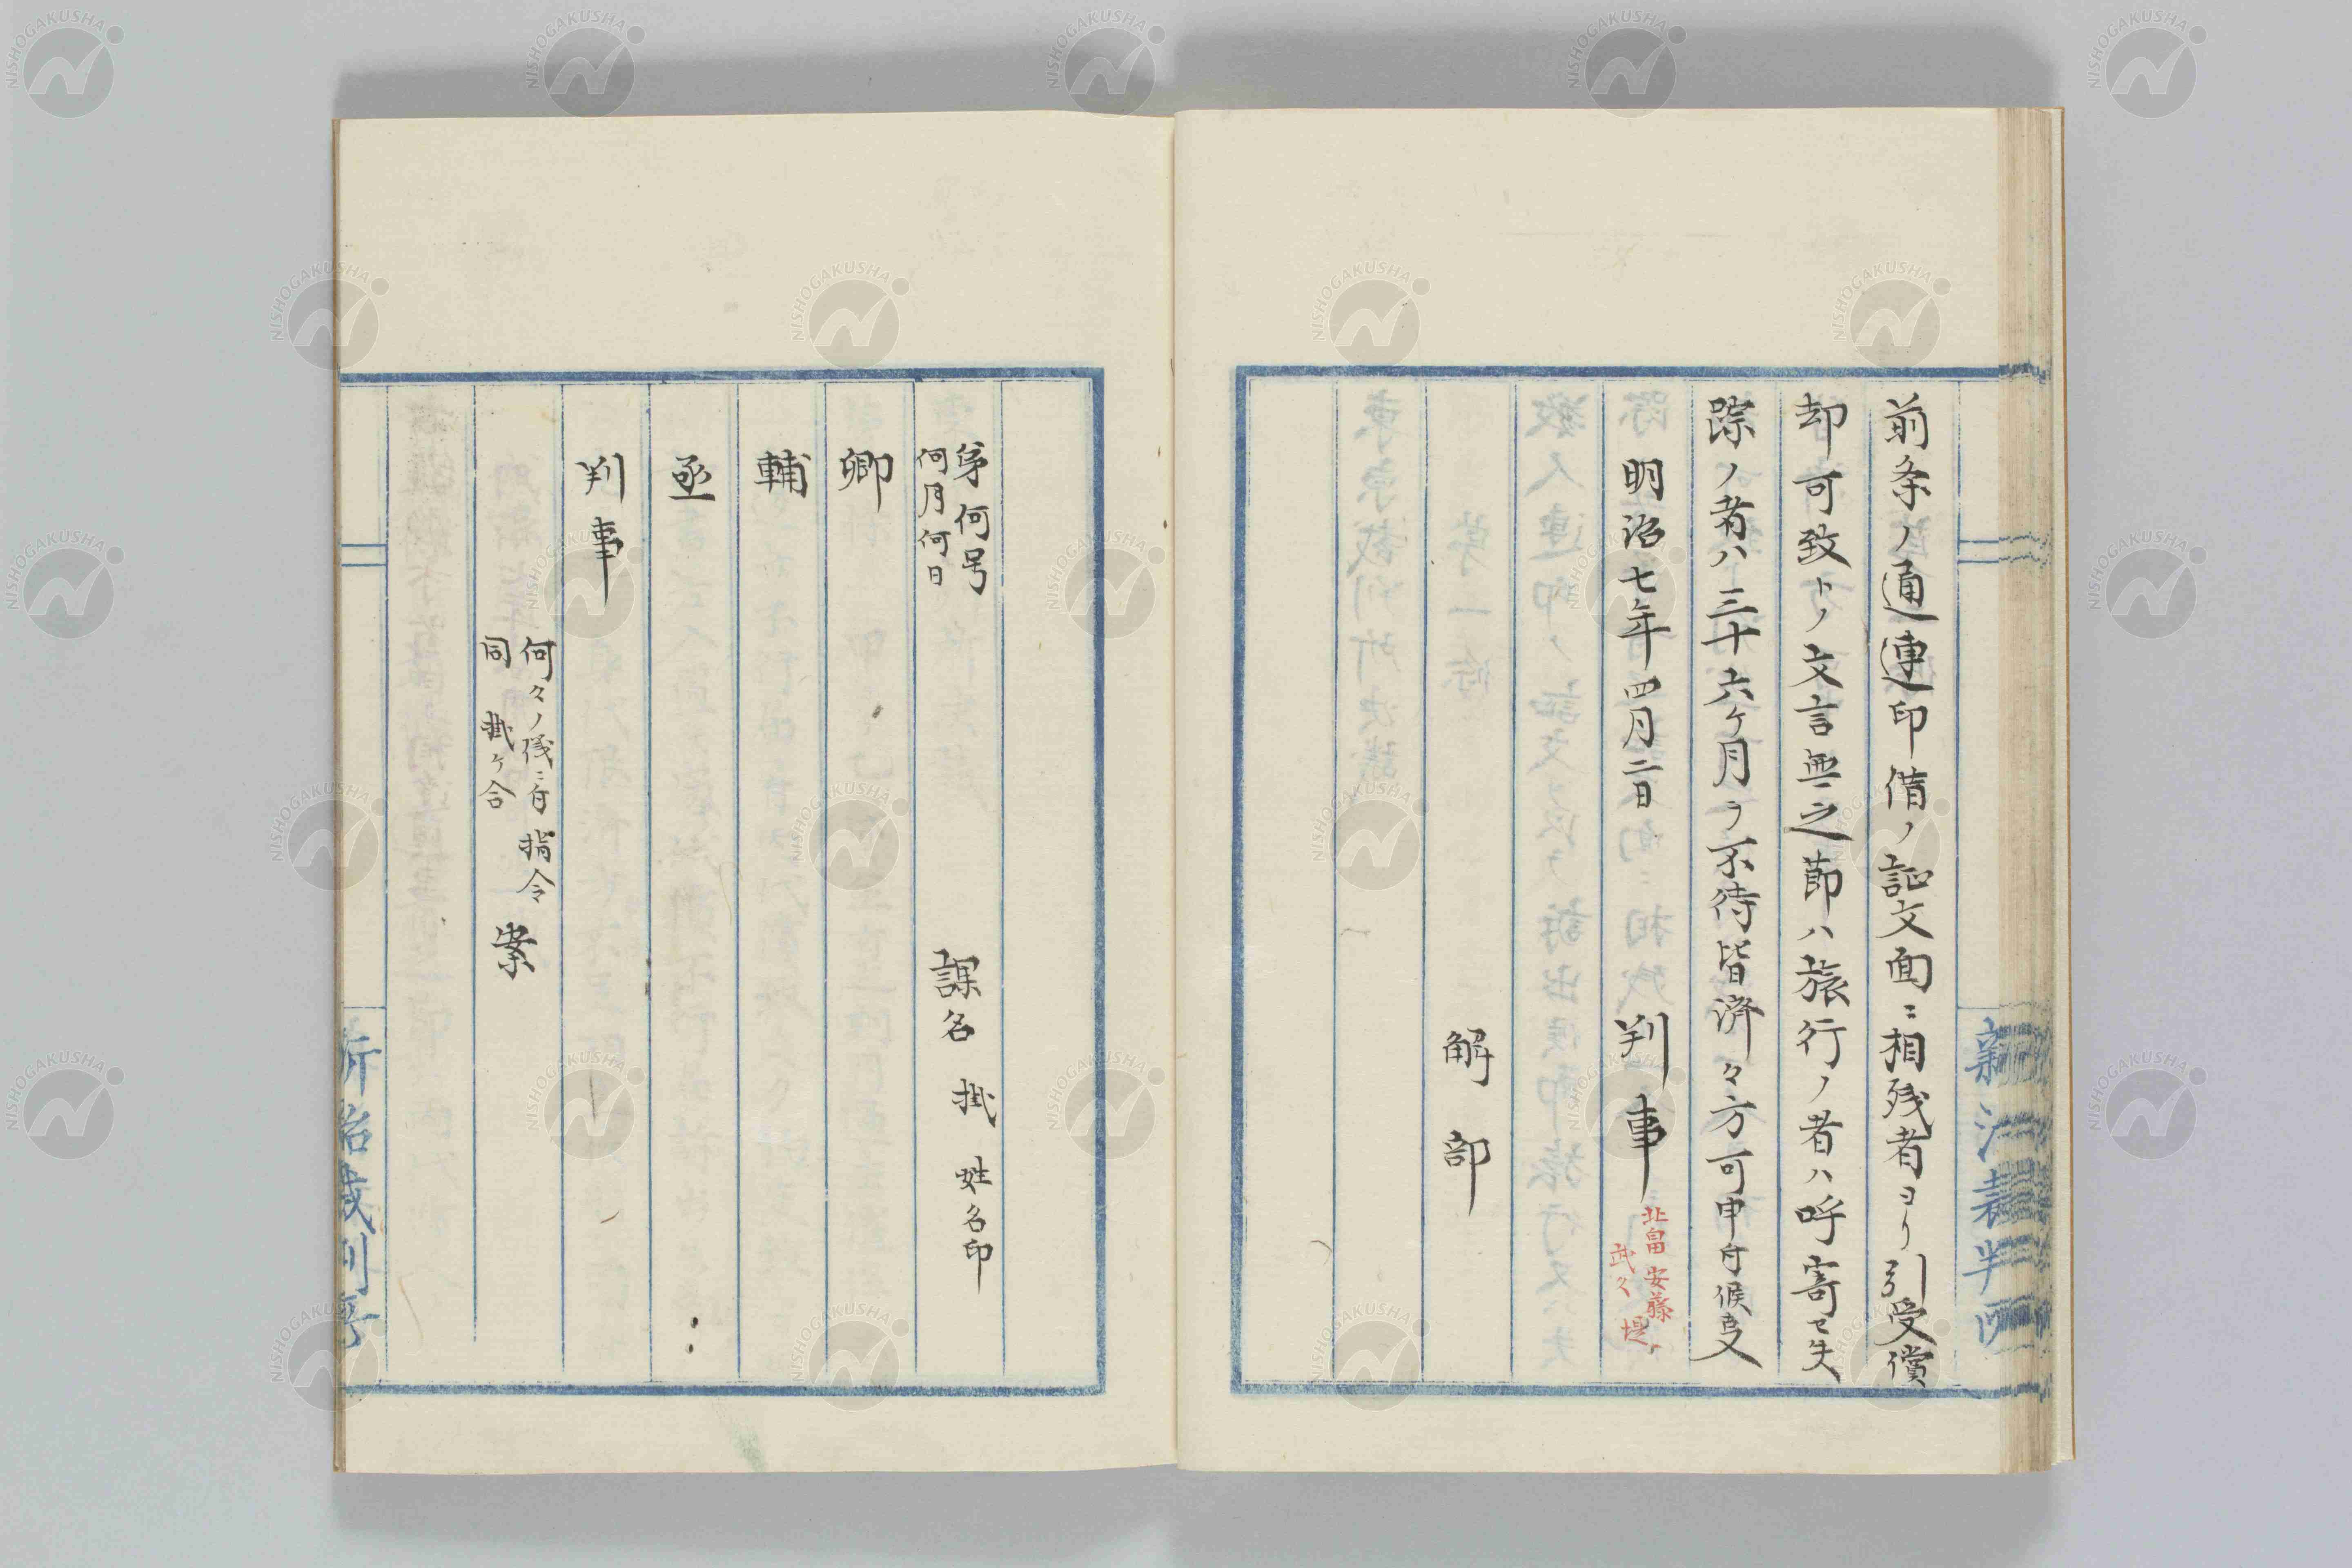 前条ノ通連印借ノ証文面ニ相残者ヨリ引受償
却可致トノ文言無之節ハ旅行ノ者ハ呼寄セ失
踪ノ者ハ三十六ケ月ヲ不待皆済々方可申付候
明治七年四月二日
判事
北畠 安藤
武久 堤
解部
第何号
何月何日
課名 掛 姓名印
卿
輔
丞
判事
何々ノ儀ニ付指令
同 掛ケ合
案
新治裁判所
NISHOGAKUSHA